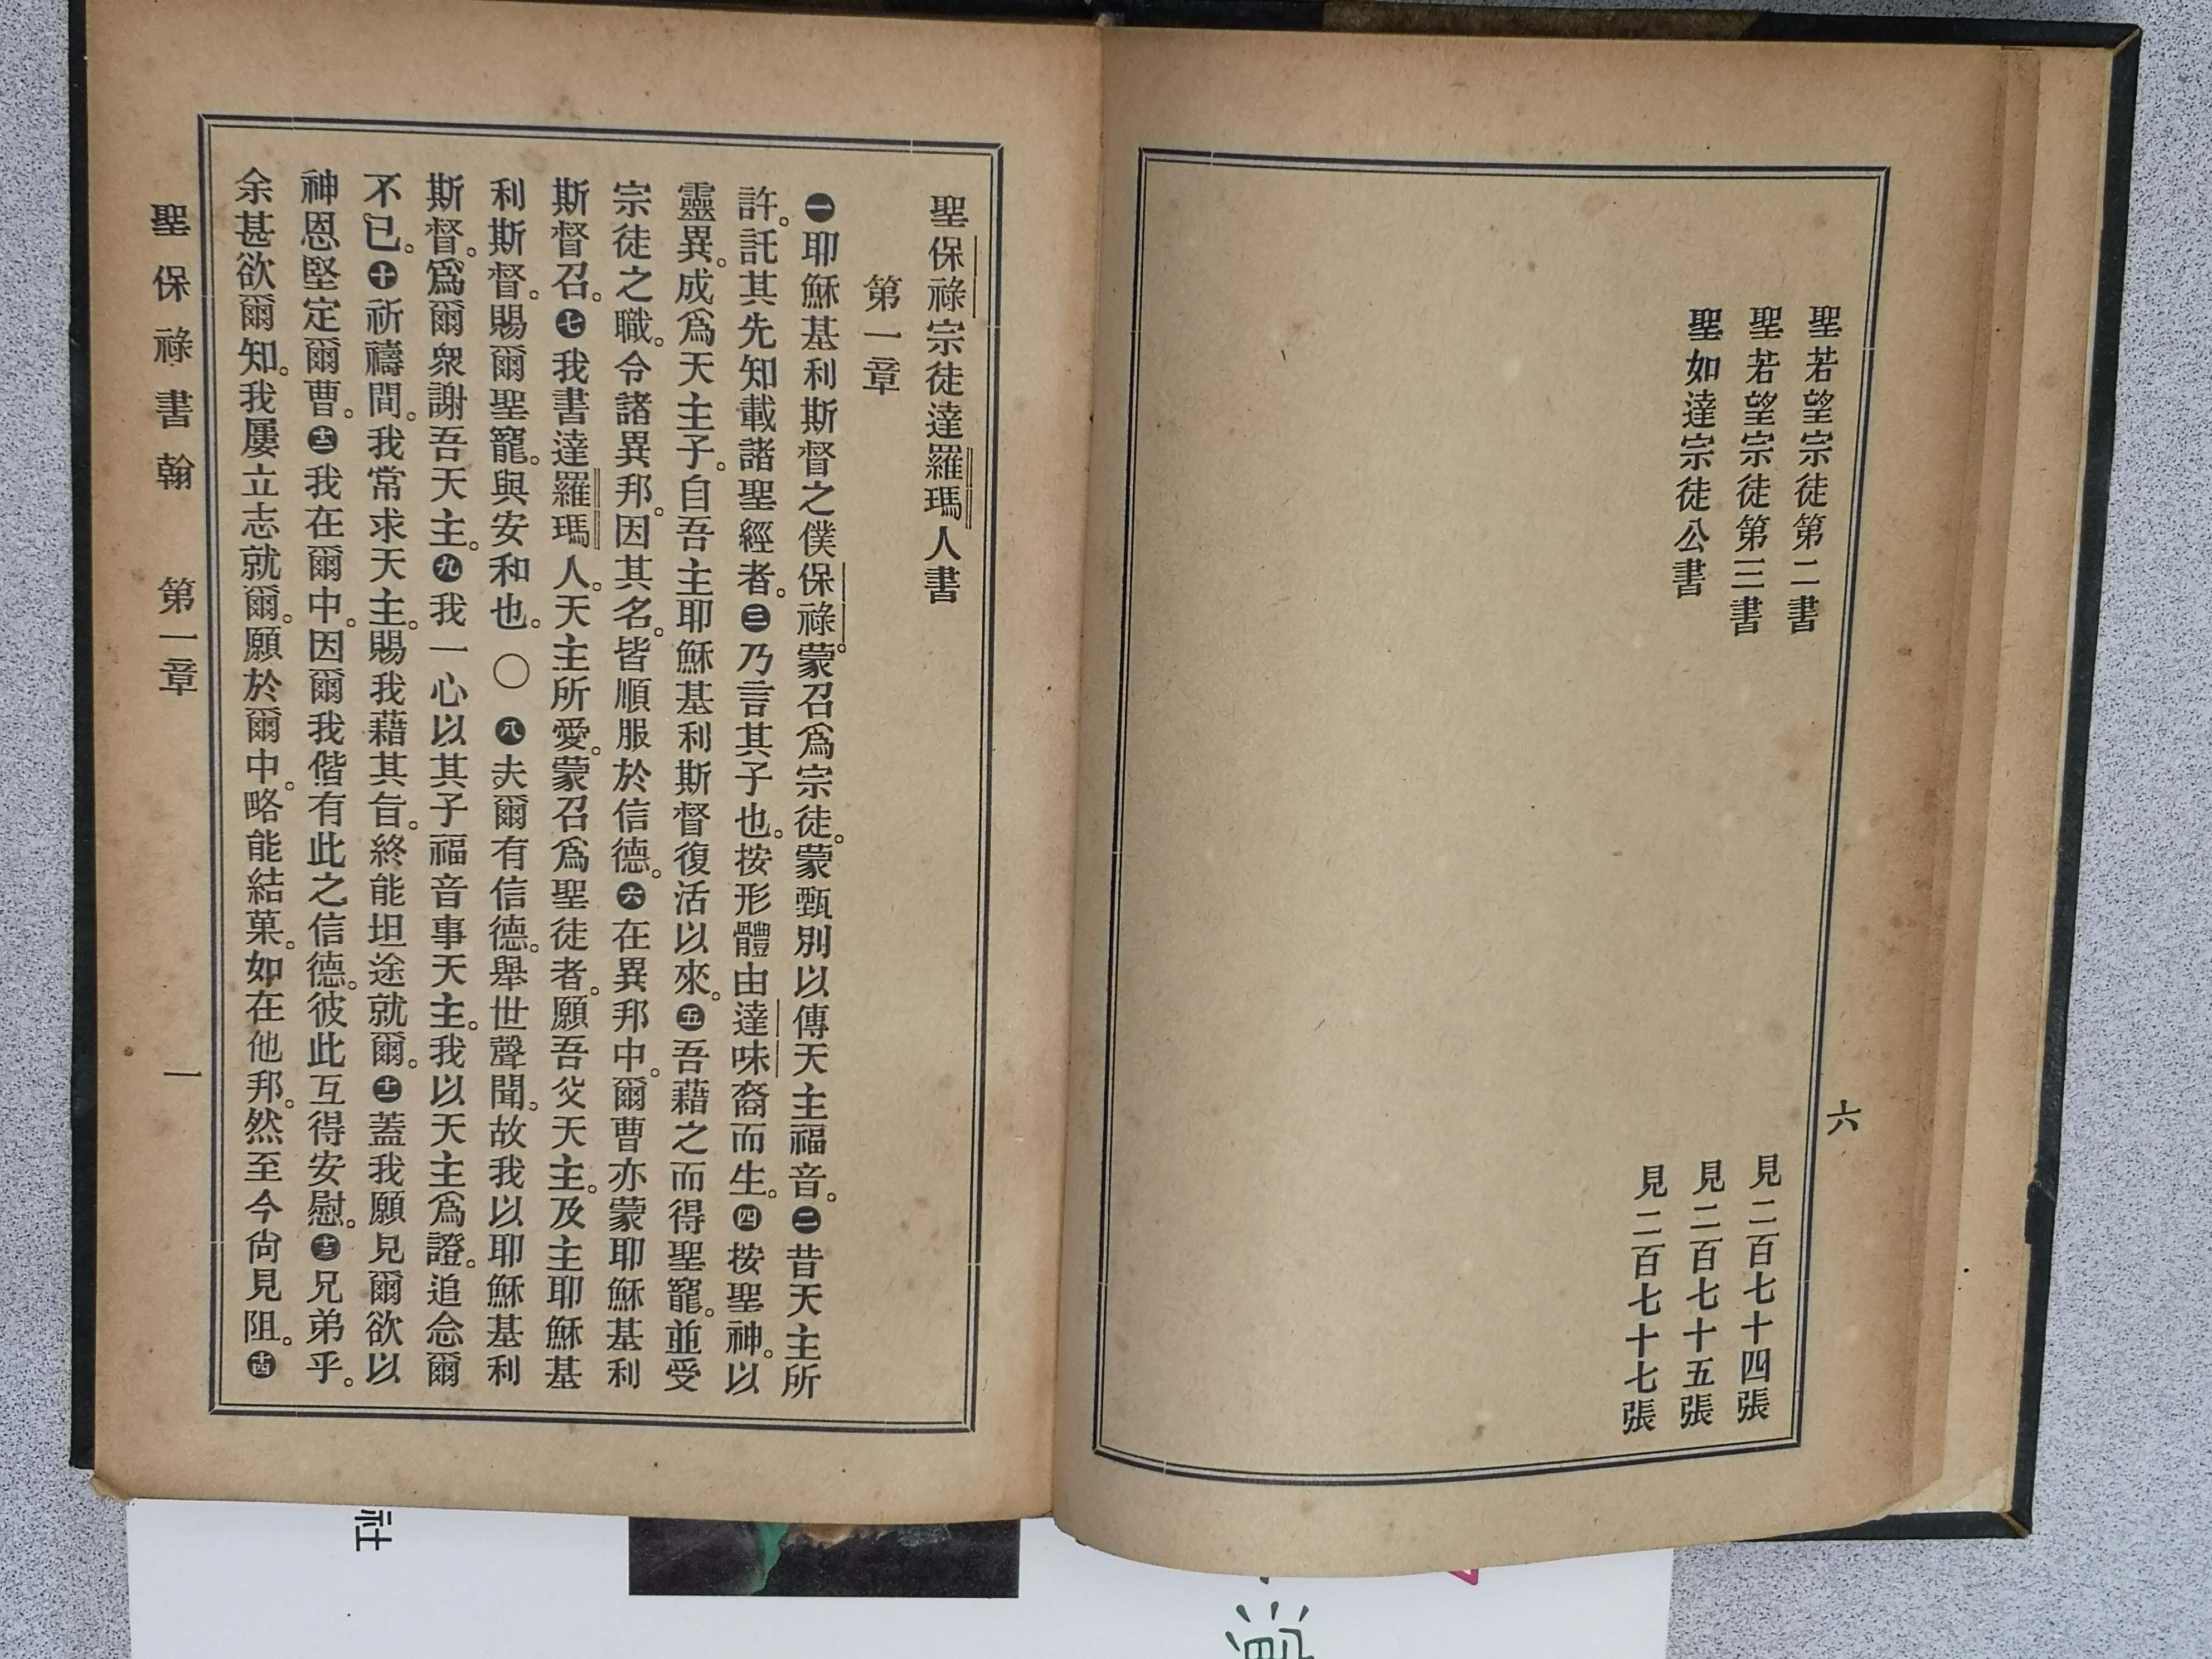 聖若望宗徒第二書 見二百七十四張
聖若望宗徒第三書 見二百七十五張
聖如達宗徒公書 見二百七十七張
六
聖保祿宗徒達羅瑪人書
第一章
㊀耶穌基利斯督之僕保祿。蒙召爲宗徒。蒙甄別以傳天主福音。㊁昔天主所
許。託其先知載諸聖經者。㊂乃言其子也。按形體由達味裔而生。㊃按聖神。以
靈異。成爲天主子。自吾主耶穌基利斯督復活以來。㊄吾藉之而得聖寵。並受
宗徒之職。令諸異邦。因其名。皆順服於信德。㊅在異邦中。爾曹亦蒙耶穌基利
斯督召。㊆我書達羅瑪人。天主所愛。蒙召爲聖徒者。願吾父天主。及主耶穌基
利斯督。賜爾聖寵。與安和也。〇㊇夫爾有信德。舉世聲聞。故我以耶穌基利
斯督。爲爾衆謝吾天主。㊈我一心以其子福音事天主。我以天主爲證。追念爾
不已。㊉祈禱間。我常求天主。賜我藉其旨。終能坦途就爾。⓫蓋我願見爾欲以
神恩堅定爾曹。⓬我在爾中。因爾我偕有此之信德。彼此互得安慰。⓭兄弟乎。
余甚欲爾知。我屢立志就爾。願於爾中。略能結菓。如在他邦。然至今尙見阻。⓮
聖保祿書翰 第一章 一
社